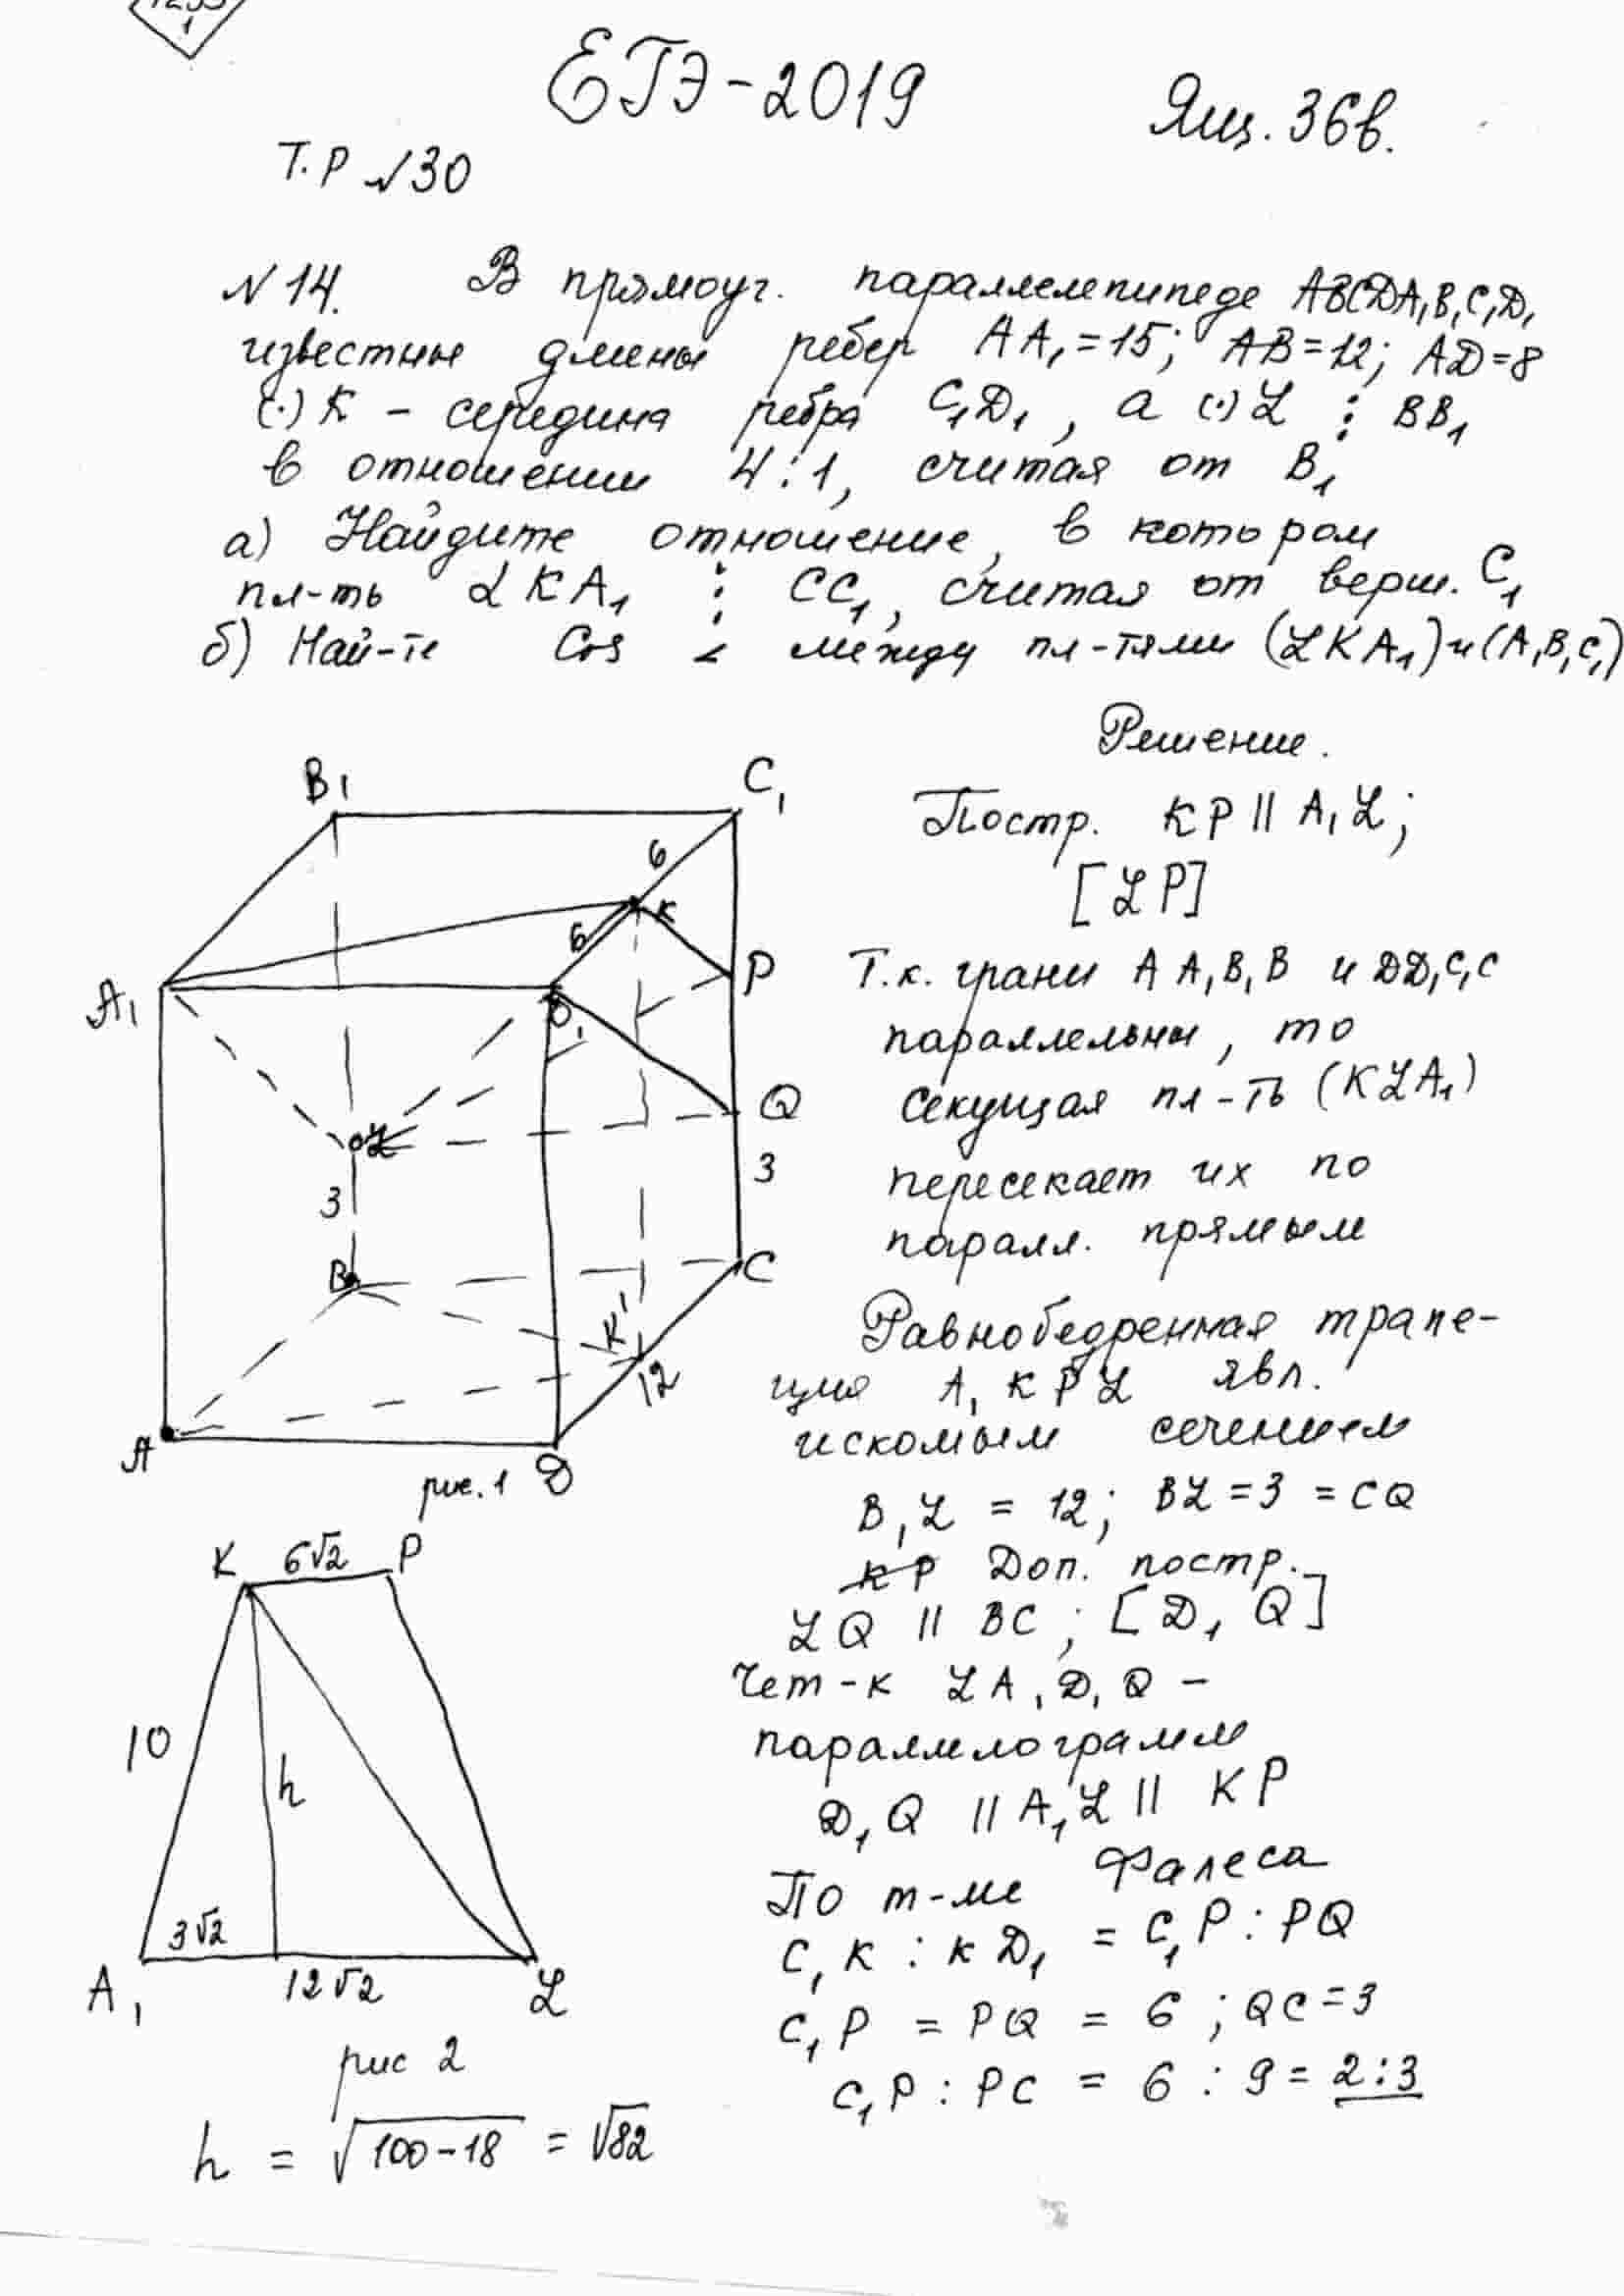 1
ЕГЭ-2019
Ящ. 36в.
Т.Р №30
№14. В прямоуг. параллелепипеде ABCDA₁B₁C₁D₁
известны длины ребер AA₁=15; AB=12; AD=8
(·) K - середина ребра C₁D₁, а (·) L ⋮ BB₁
в отношении 4:1, считая от B₁
а) Найдите отношение, в котором
пл-ть LKA₁ ⋮ CC₁, считая от верш. C₁
б) Най-те Cos ∠ между пл-тями (LKA₁) и (A₁B₁C₁)
Решение.
Постр. KP || A₁L;
[LP]
Т.к. грани AA₁B₁B и DD₁C₁C
параллельны, то
секущая пл-ть (KLA₁)
пересекает их по
паралл. прямым
Равнобедренная трапе-
ция A₁KPL явл.
искомым сечением
B₁L = 12; BL = 3 = CQ
KP Доп. постр.
LQ || BC; [D₁Q]
Чет-к LA₁D₁Q -
параллелограмм
D₁Q || A₁L || KP
По т-ме Фалеса
C₁K : KD₁ = C₁P : PQ
C₁P = PQ = 6; QC = 3
C₁P : PC = 6 : 9 = 2:3
B₁
C₁
6
K
6
P
A₁
D₁
Q
L
3
3
B
C
K'
12
A
D
рис. 1
K 6√2 P
10
h
3√2
A₁
12√2
L
рис 2
h = √100-18 = √82